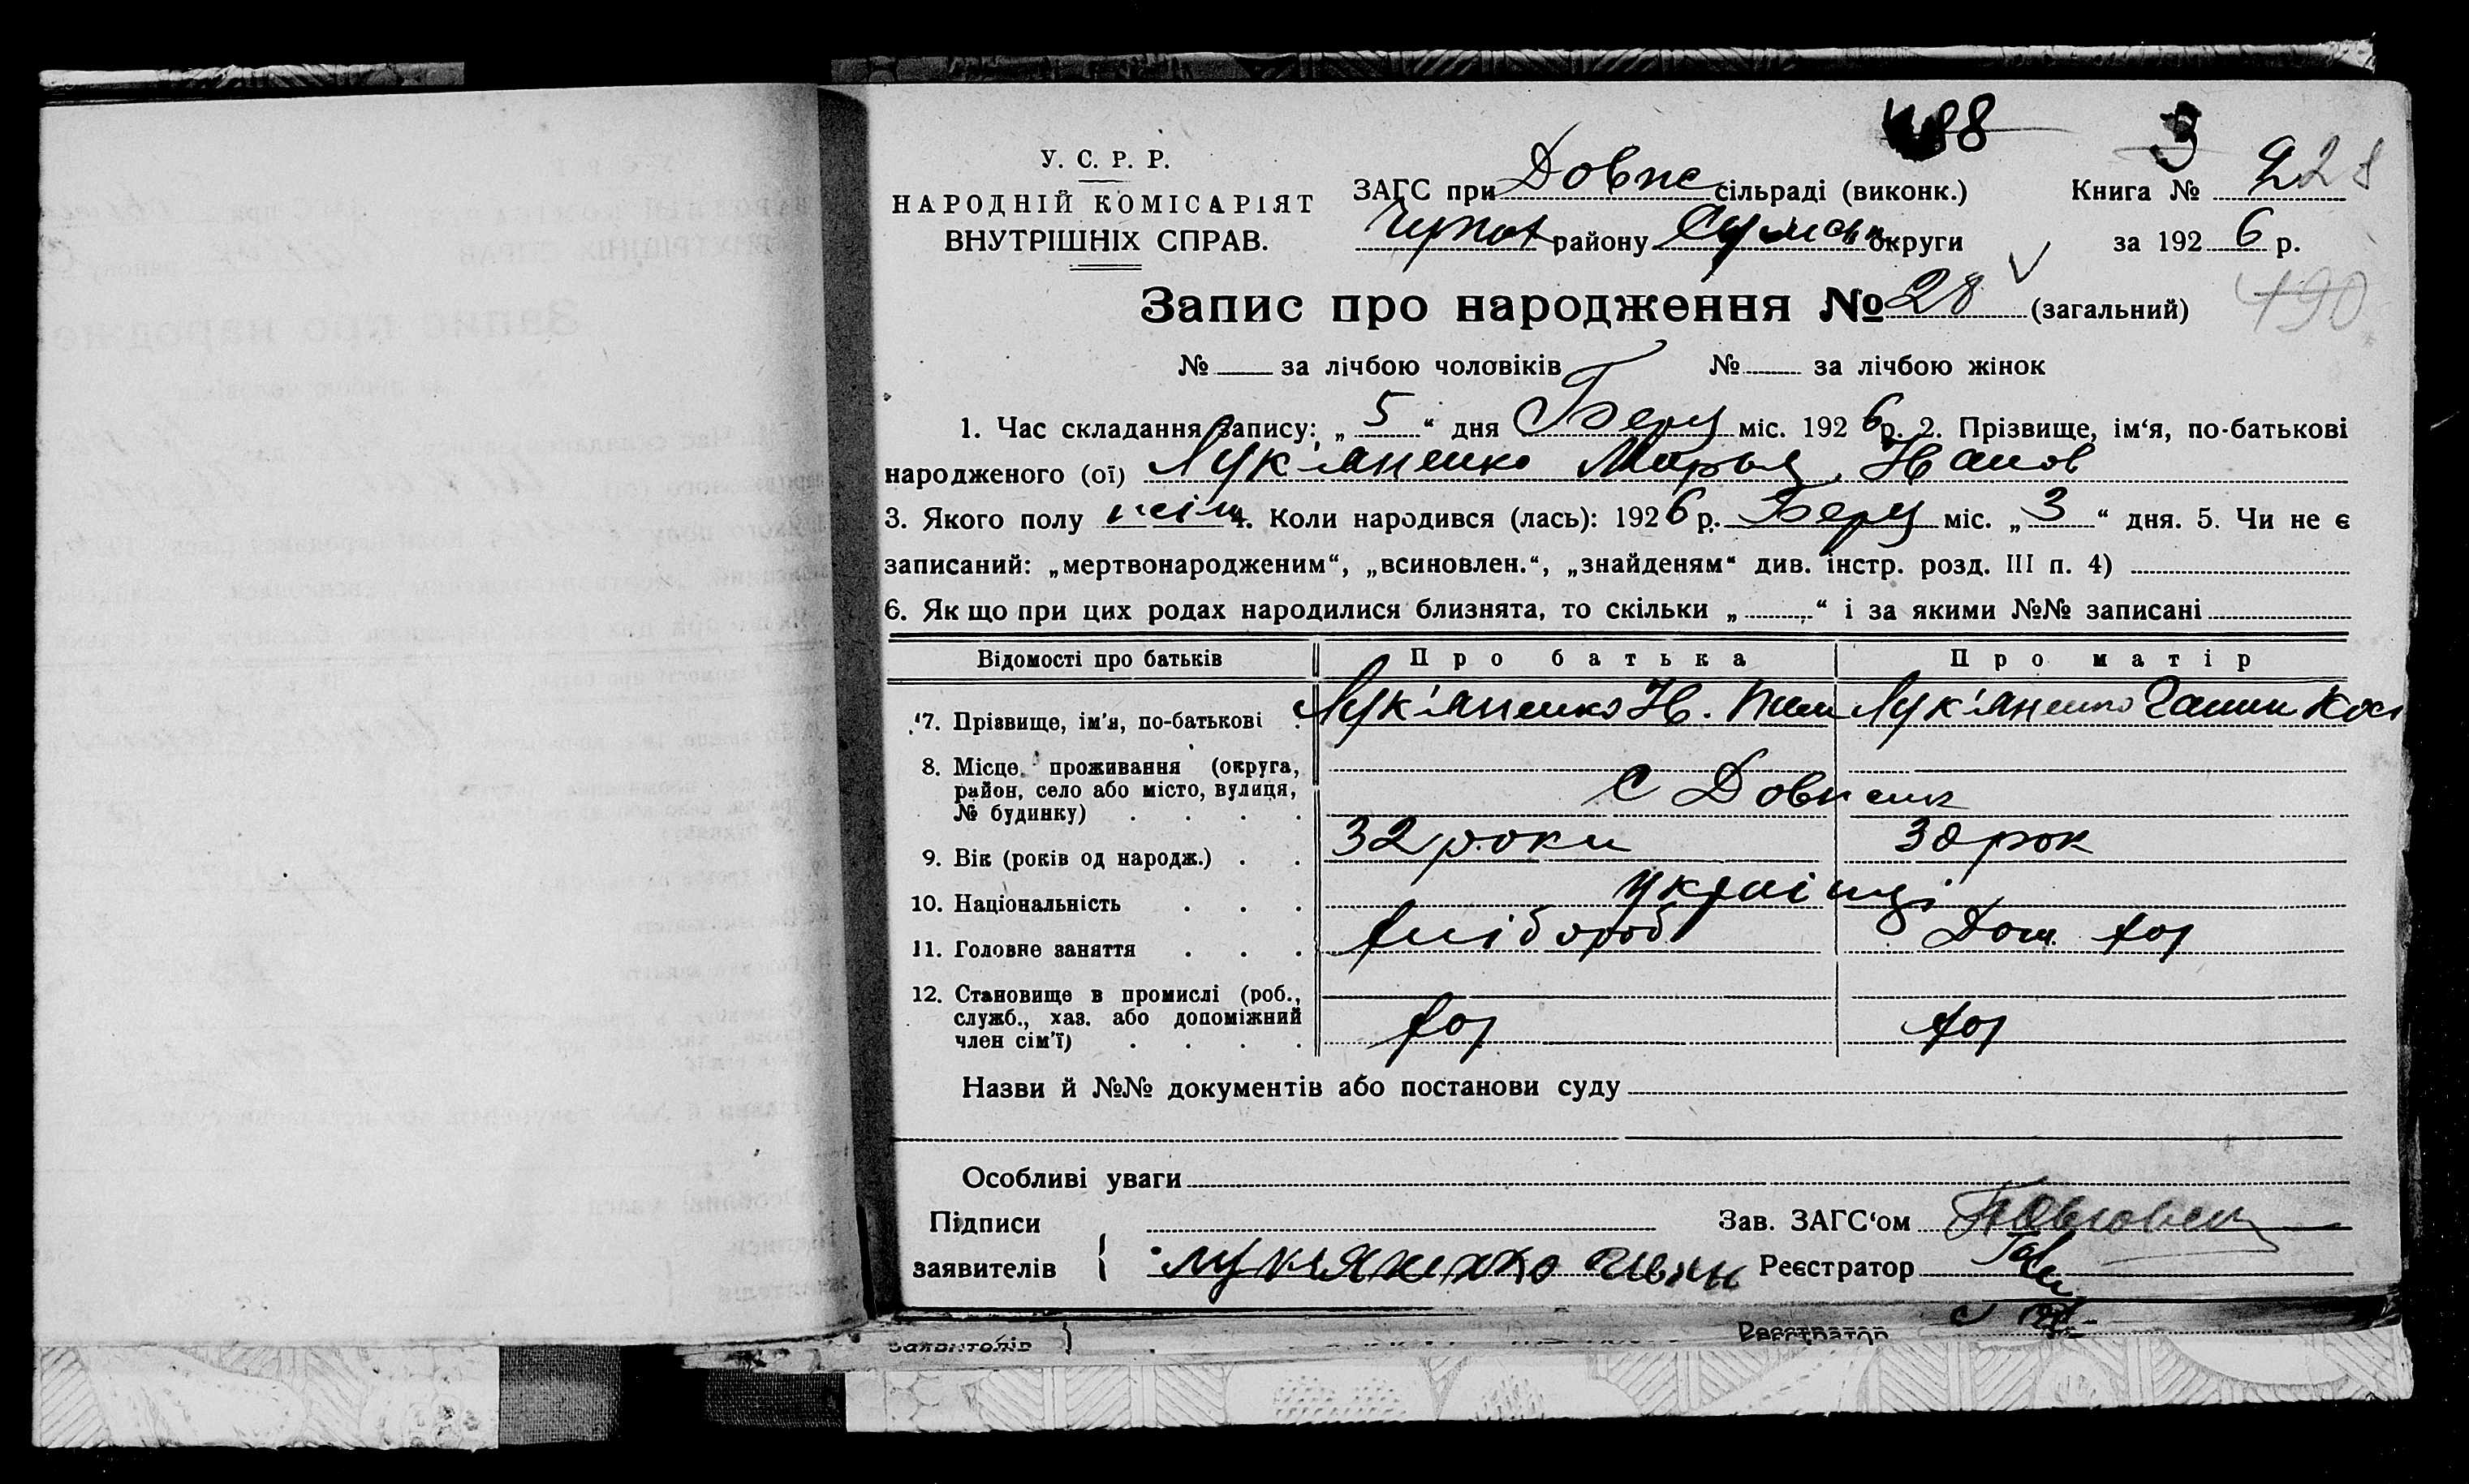 88 3
У. С. Р. Р.
НАРОДНІЙ КОМІСАРІЯТ
ВНУТРІШНІХ СПРАВ.
ЗАГС при Довже сільраді (виконк.) Книга № 2 228
району Сумськ округи за 1926 р.
Запис про народження № 28 (загальний) 490
№ за лічбою чоловіків № за лічбою жінок
1. Час складання запису: „5“ дня Берез міс. 1926 р. 2. Прізвище, ім‘я, по-батькові
народженого (ої) Лук'яненко Марья Иванов
3. Якого полу жін 4. Коли народився (лась): 1926 р. Берез міс. „3“ дня. 5. Чи не є
записаний: „мертвонародженим“, „всиновлен.“, „знайденям“ див. інстр. розд. III п. 4)
6. Як що при цих родах народилися близнята, то скільки „ “ і за якими №№ записані
Відомості про батьків Про батька Про матір
7. Прізвище, ім'я, по-батькові Лук'яненко Ив. Лук'яненко Ганна Кос
8. Місце проживання (округа,
район, село або місто, вулиця,
№ будинку)
с
9. Вік (років од народж.) 32 роки 30 рок
10. Національність українці
11. Головне заняття хлібороб Дом. хоз
12. Становище в промислі (роб.,
служб., хаз. або допоміжний
член сім'ї) хоз хоз
Назви й №№ документів або постанови суду
Особливі уваги
Підписи Зав. ЗАГС‘ом
заявителів Реєстратор
заявителів Реєстратор